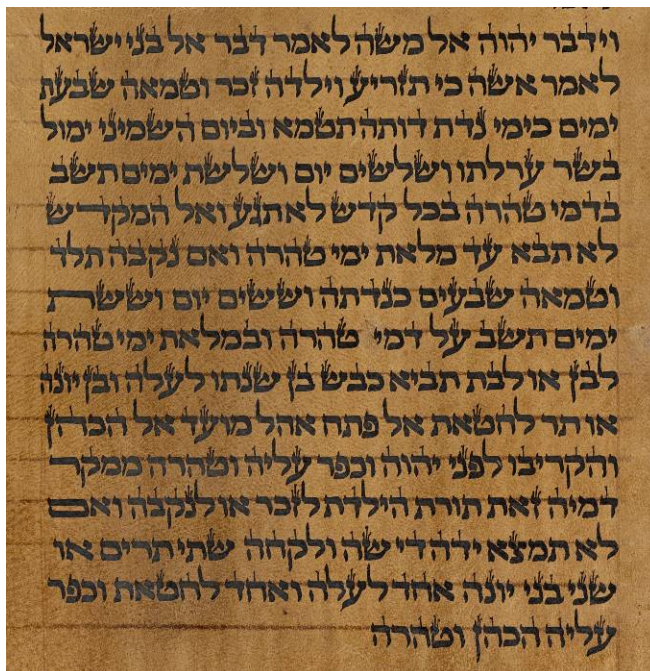 וידבר יהוה אל משה לאמר דבר אל בני ישראל
לאמר אשה כי תזריע וילדה זכר וטמאה שבעת
ימים כימי נדת דותה תטמא וביום השמיני ימול
בשר ערלתו ושלשים יום ושלשת ימים תשב
בדמי טהרה בכל קדש לא תגע ואל המקדש
לא תבא עד מלאת ימי טהרה ואם נקבה תלד
וטמאה שבעים כנדתה וששים יום וששת
ימים תשב על דמי טהרה ובמלאת ימי טהרה
לבן או לבת תביא כבש בן שנתו לעלה ובן יונה
או תר לחטאת אל פתח אהל מועד אל הכהן
והקריבו לפני יהוה וכפר עליה וטהרה ממקר
דמיה זאת תורת הילדת לזכר או לנקבה ואם
לא תמצא ידה די שה ולקחה שתי תרים או
שני בני יונה אחד לעלה ואחד לחטאת וכפר
עליה הכהן וטהרה